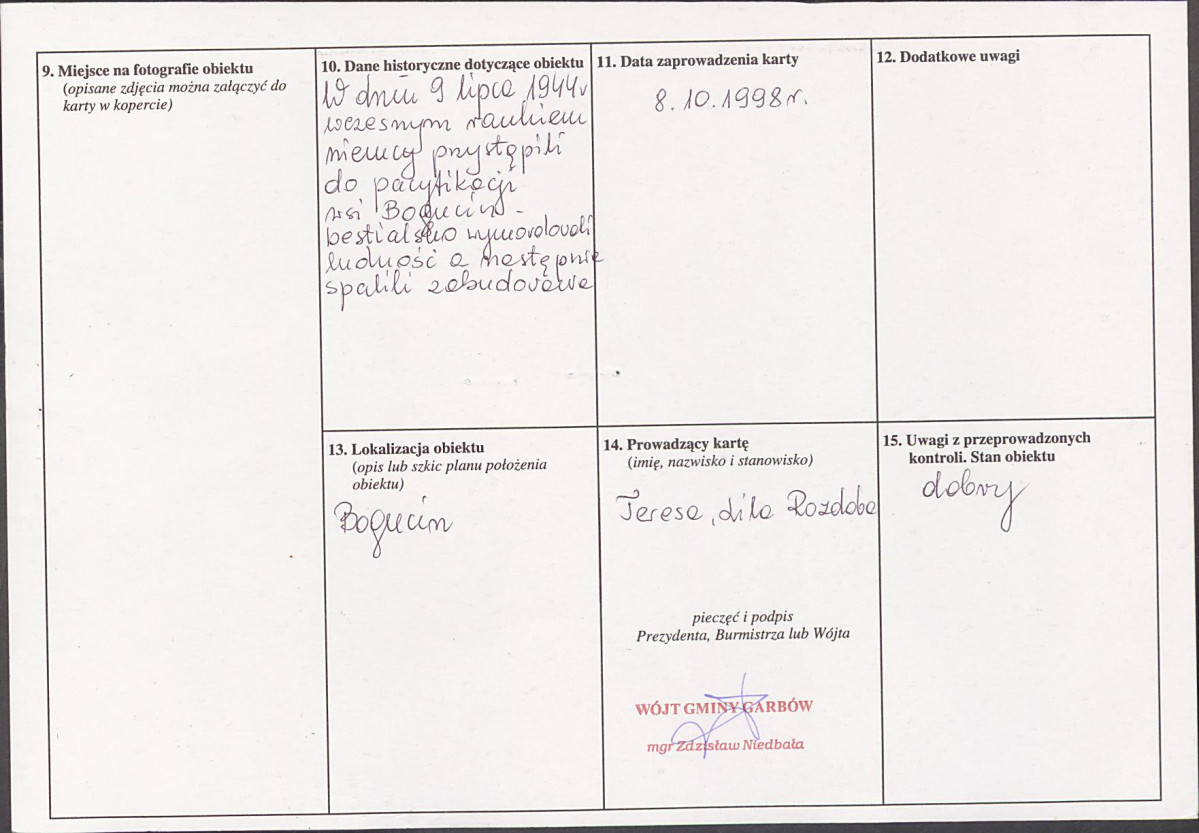 9. Miejsce na fotografie obiektu
(opisane zdjęcia można załączyć do
karty w kopercie)
10. Dane historyczne dotyczące obiektu
W dniu 9 lipca 1944r
wczesnym rankiem
niemcy przystąpili
do pacyfikacji
wsi Bogucin -
bestialsko wymordowali
ludność a następnie
spalili zabudowania
11. Data zaprowadzenia karty
8.10.1998r.
12. Dodatkowe uwagi
13. Lokalizacja obiektu
(opis lub szkic planu położenia
obiektu)
Bogucin
14. Prowadzący kartę
(imię, nazwisko i stanowisko)
Teresa, Lila Rozdoba
pieczęć i podpis
Prezydenta, Burmistrza lub Wójta
WÓJT GMINY GARBÓW
mgr Zdzisław Niedbała
15. Uwagi z przeprowadzonych
kontroli. Stan obiektu
dobry